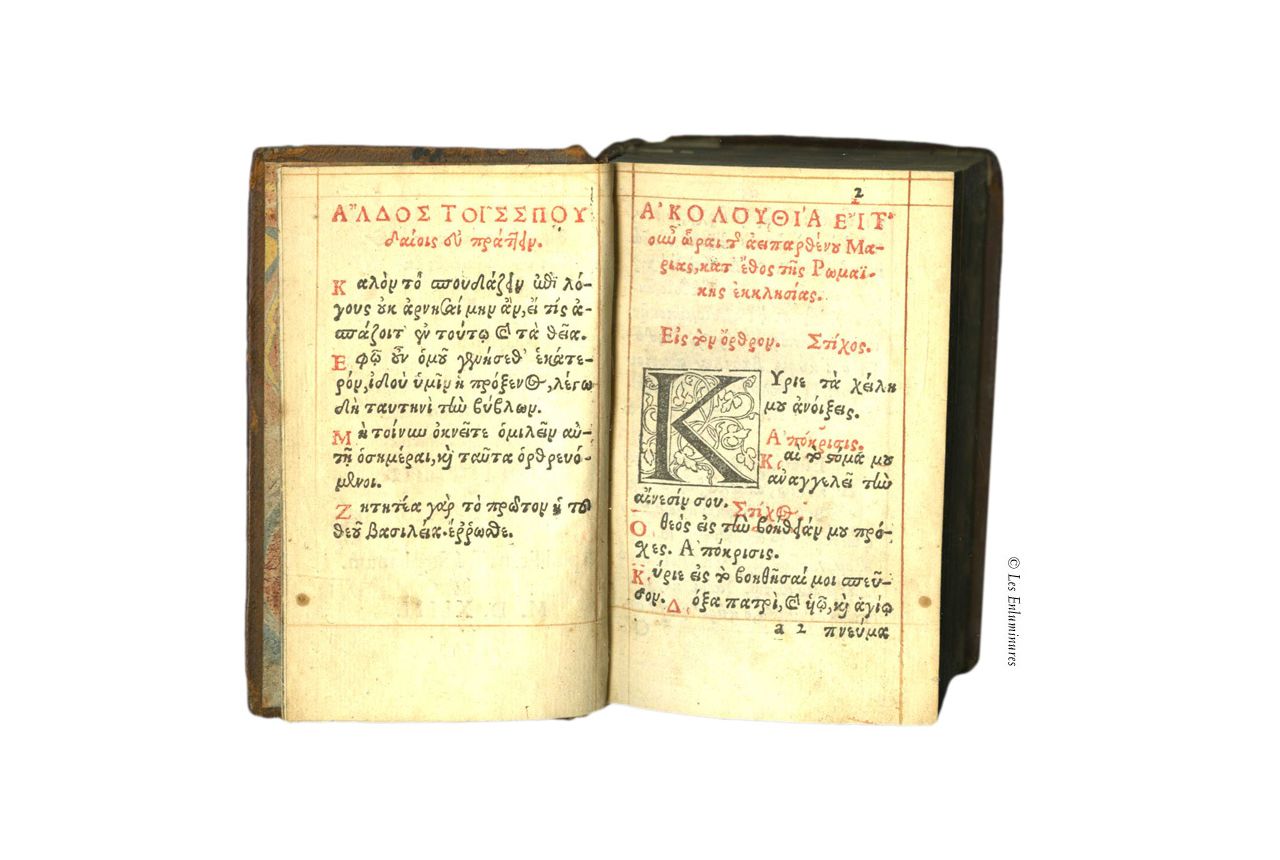 ἌΛΔΟΣ ΤΟΙ͂Σ ΣΠΟΥ
δαίοις εὖ πράττειν.
Καλὸν τὸ σπουδάζειν ἐπὶ λό-
γους οὐκ ἀρνησαίμην ἄν, εἴ τις ἀ-
σπάζοιτ' ἐν τούτῳ καὶ τὰ θεῖα.
Ἐφῷ οὖν ὁμοῦ γενήσεθ' ἑκάτε-
ρον, ἰδοὺ ὑμῖν ἡ πρόξενος, λέγω
δὴ ταυτηνὶ τὴν βύβλον.
Μὴ τοίνυν ὀκνεῖτε ὁμιλεῖν αὐ-
τῇ ὁσημέραι, καὶ ταῦτα ὀρθρευό-
μενοι.
Ζητητέα γὰρ τὸ πρῶτον ἡ τοῦ
θεοῦ βασιλεία. ἔρρωσθε.
2
ἈΚΟΛΟΥΘΊΑ ΕἼΤ'
οὖν ὧραι τῆς ἀειπαρθένου Μα-
ρίας, κατ' ἔθος τῆς Ῥωμαϊ-
κῆς ἐκκλησίας.
Εἰς τὸν ὄρθρον. Στίχος.
Κύριε τὰ χείλη
μου ἀνοίξεις.
Ἀπόκρισις.
Καὶ τὸ στόμα μου
ἀναγγελεῖ τὴν
αἴνεσίν σου. Στίχος.
Ὁ θεὸς εἰς τὴν βοήθειάν μου πρό-
χες. Ἀπόκρισις.
Κύριε εἰς τὸ βοηθῆσαί μοι σπεῦ-
σον. Δόξα πατρὶ, καὶ υἱῷ, καὶ ἁγίῳ
a 2 πνεύμα
© Les Enluminures